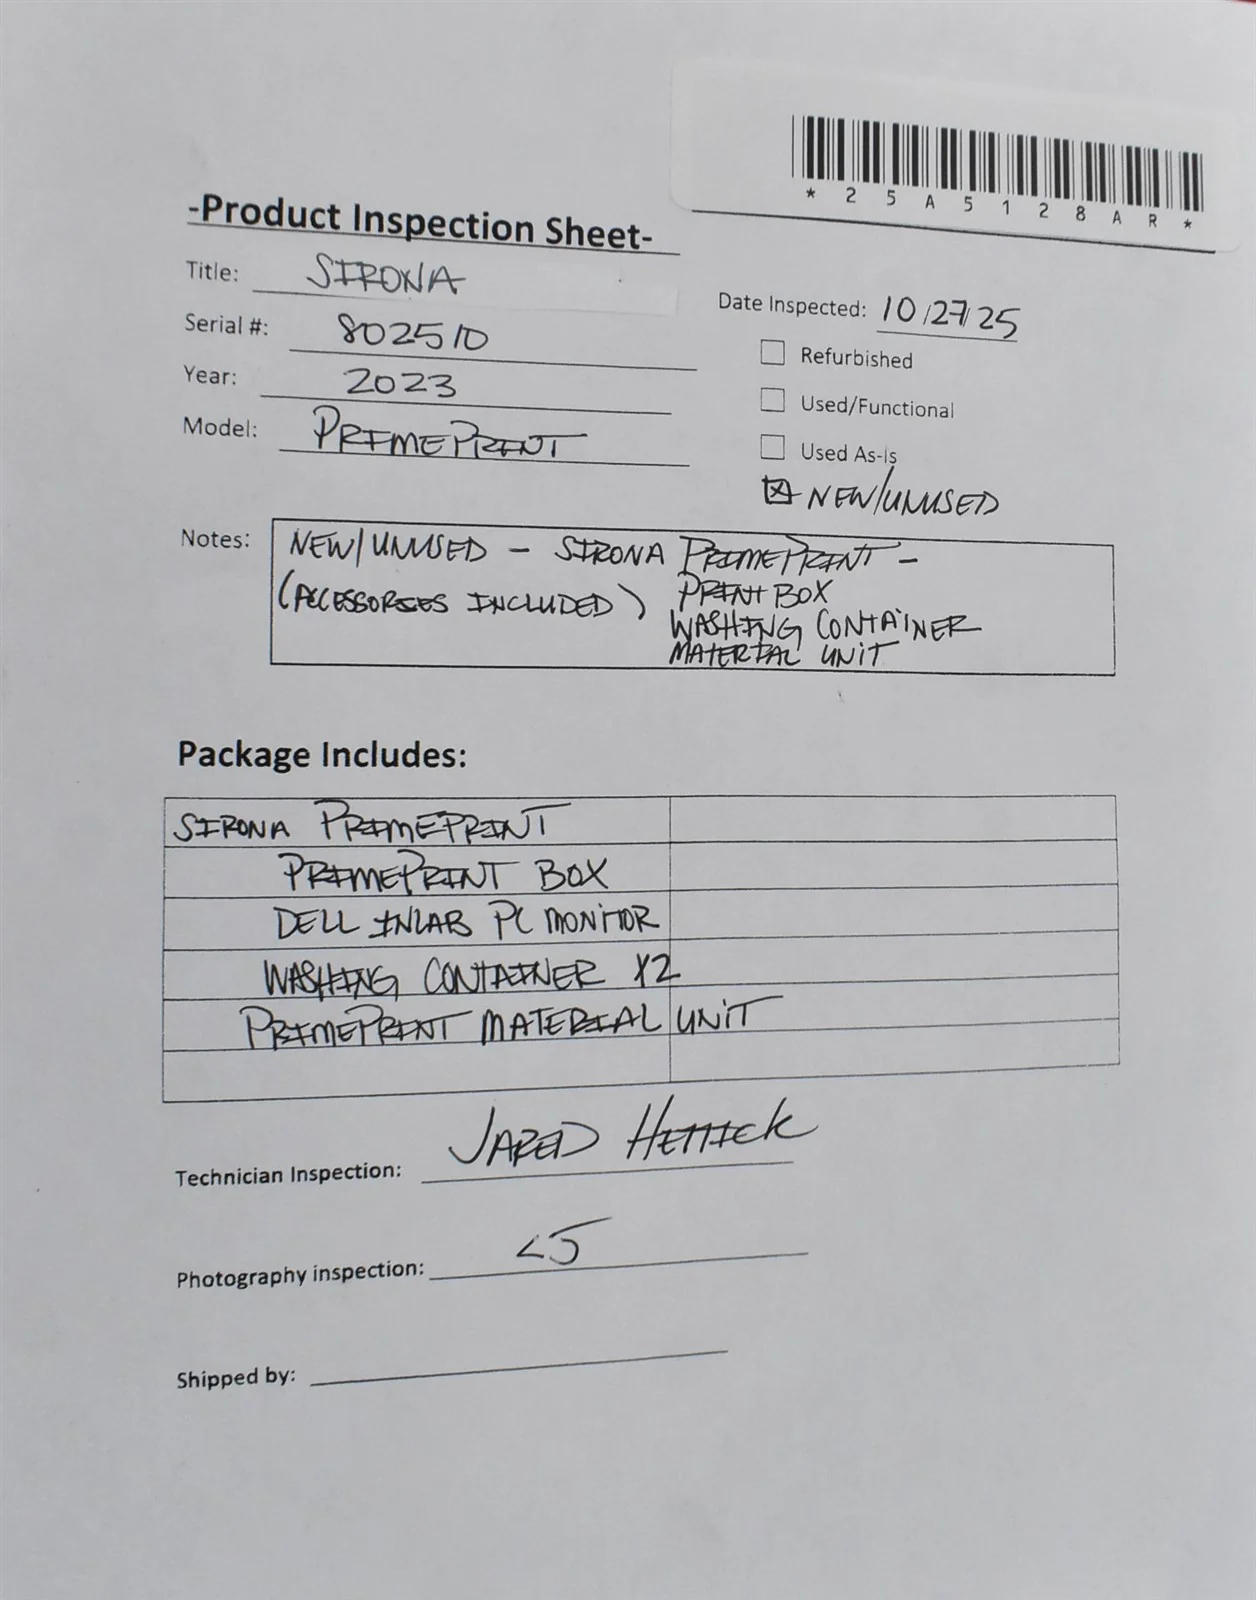 *25A5128AR*
-Product Inspection Sheet-
Title: SIRONA
Date Inspected: 10/27/25
Serial #: 802510
Refurbished
Year: 2023
Used/Functional
Model: PRIMEPRINT
Used As-Is
NEW/UNUSED
Notes: NEW/UNUSED - SIRONA PRIMEPRINT -
(ACCESSORIES INCLUDED) PRINT BOX
WASHING CONTAINER
MATERIAL UNIT
Package Includes:
SIRONA PRIMEPRINT
PRIMEPRINT BOX
DELL INLAB PC MONITOR
WASHING CONTAINER X2
PRIMEPRINT MATERIAL UNIT
Technician Inspection: JARED HETTICK
Photography inspection:
Shipped by: